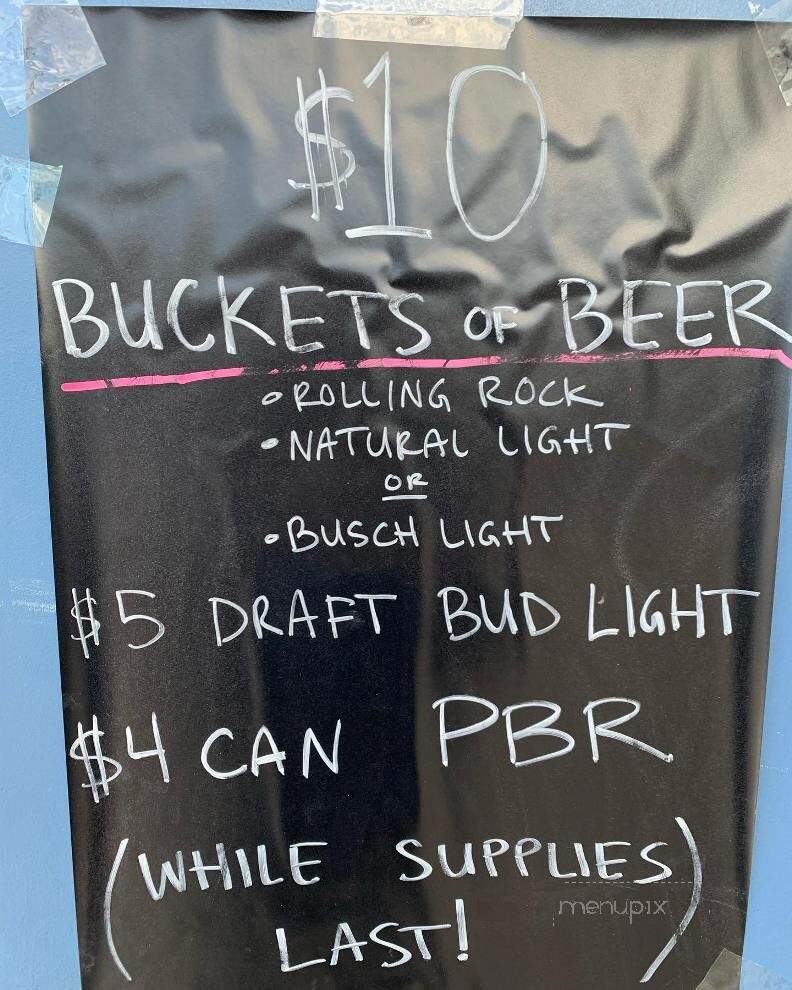 $10
BUCKETS OF BEER
• ROLLING ROCK
• NATURAL LIGHT
OR
• BUSCH LIGHT
$5 DRAFT BUD LIGHT
$4 CAN PBR
(WHILE SUPPLIES
LAST!)
menupix